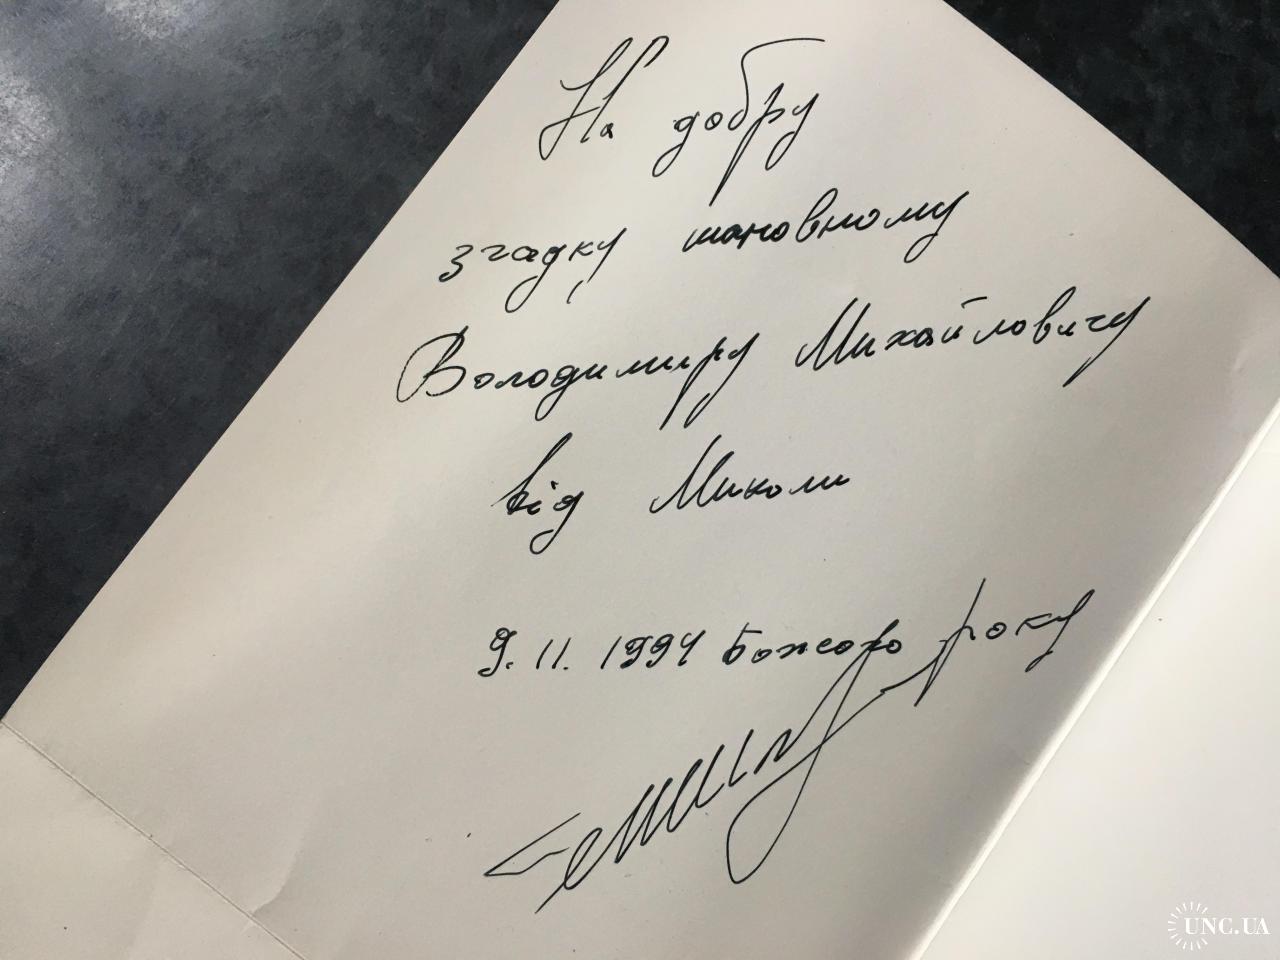 На добру
згадку шановному
Володимиру Михайловичу
від Миколи
9.11.1994 Божого року
UNC.UA